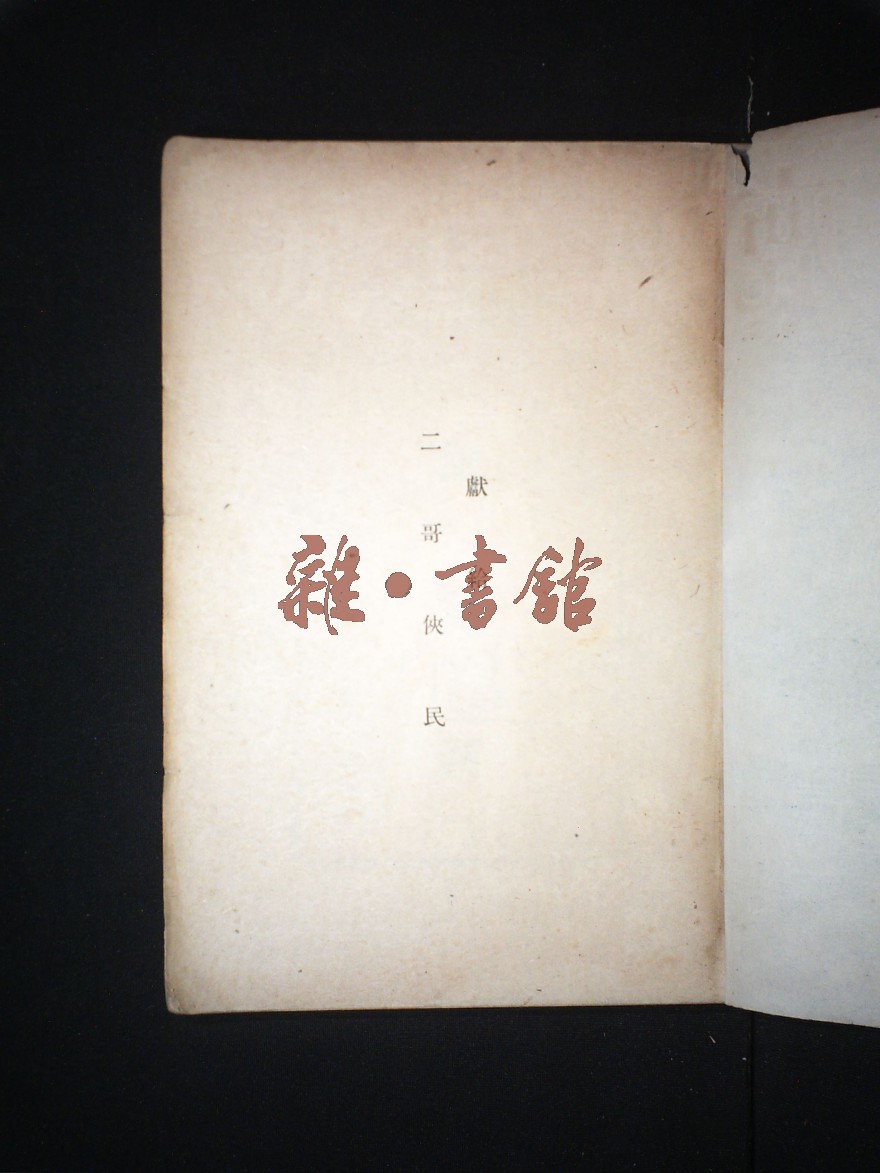 獻給
二哥俠民
雜·書館